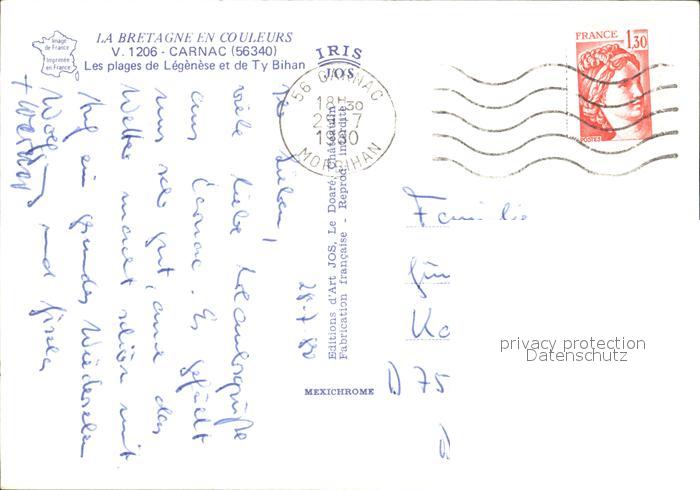 Image
de France
Imprimée
en France
LA BRETAGNE EN COULEURS
V. 1206 - CARNAC (56340)
Les plages de Légénèse et de Ty Bihan
IRIS
JOS
56 CARNAC
18H30
1980
MORBIHAN
FRANCE
1,30
POSTES
Ihr Lieben,
viele liebe Urlaubsgrüße
aus Carnac. Es gefällt
uns sehr gut, auch das
Wetter macht schön mit.
Auf ein gesundes Wiedersehen
Wolfgang und Gisela
28.7.80
Editions d'Art JOS, Le Doaré, Châteaulin
Fabrication française - Reprod. interdite
MEXICHROME
Familie
D 75
privacy protection
Datenschutz